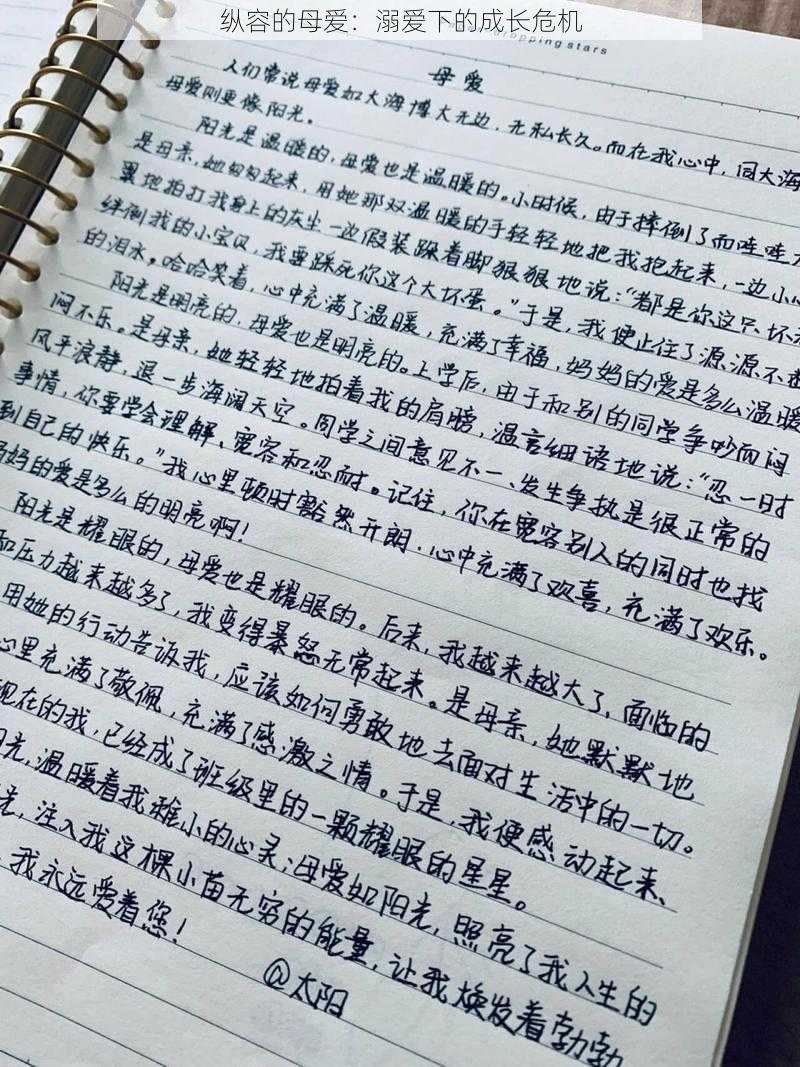 纵容的母爱：溺爱下的成长危机
dropping stars
母爱
人们常说母爱如大海博大无边，无私长久。而在我心中，同大海
母爱则更像阳光。
阳光是温暖的，母爱也是温暖的。小时候，由于摔倒了而哇哇大
是母亲，她匆匆起来，用她那双温暖的手轻轻地把我抱起来，一边小心
翼地拍打我身上的灰尘一边假装跺着脚狠狠地说：“都是你这只坏
绊倒我的小宝贝，我要跺死你这个大坏蛋。”于是，我便止住了源源不断
的泪水。哈哈笑着，心中充满了温暖，充满了幸福，妈妈的爱是多么温暖
阳光是明亮的，母爱也是明亮的。上学后，由于和别的同学争吵而闷
闷不乐。是母亲，她轻轻地拍着我的肩膀，温言细语地说：“忍一时
风平浪静，退一步海阔天空。同学之间意见不一、发生争执是很正常的
事情，你要学会理解、宽容和忍耐。记住，你在宽容别人的同时也找
到自己的快乐。”我心里顿时豁然开朗，心中充满了欢喜，充满了欢乐。
妈妈的爱是多么的明亮啊！
阳光是耀眼的，母爱也是耀眼的。后来，我越来越大了，面临的
和压力越来越多了，我变得暴怒无常起来。是母亲，她默默地
用她的行动告诉我，应该如何勇敢地去面对生活中的一切。
心里充满了敬佩，充满了感激之情。于是，我便感动起来、
现在的我，已经成了班级里的一颗耀眼的星星。
阳光，温暖着我稚小的心灵；母爱如阳光，照亮了我人生的
光，注入我这棵小苗无穷的能量，让我焕发着勃勃
，我永远爱着您！
@太阳